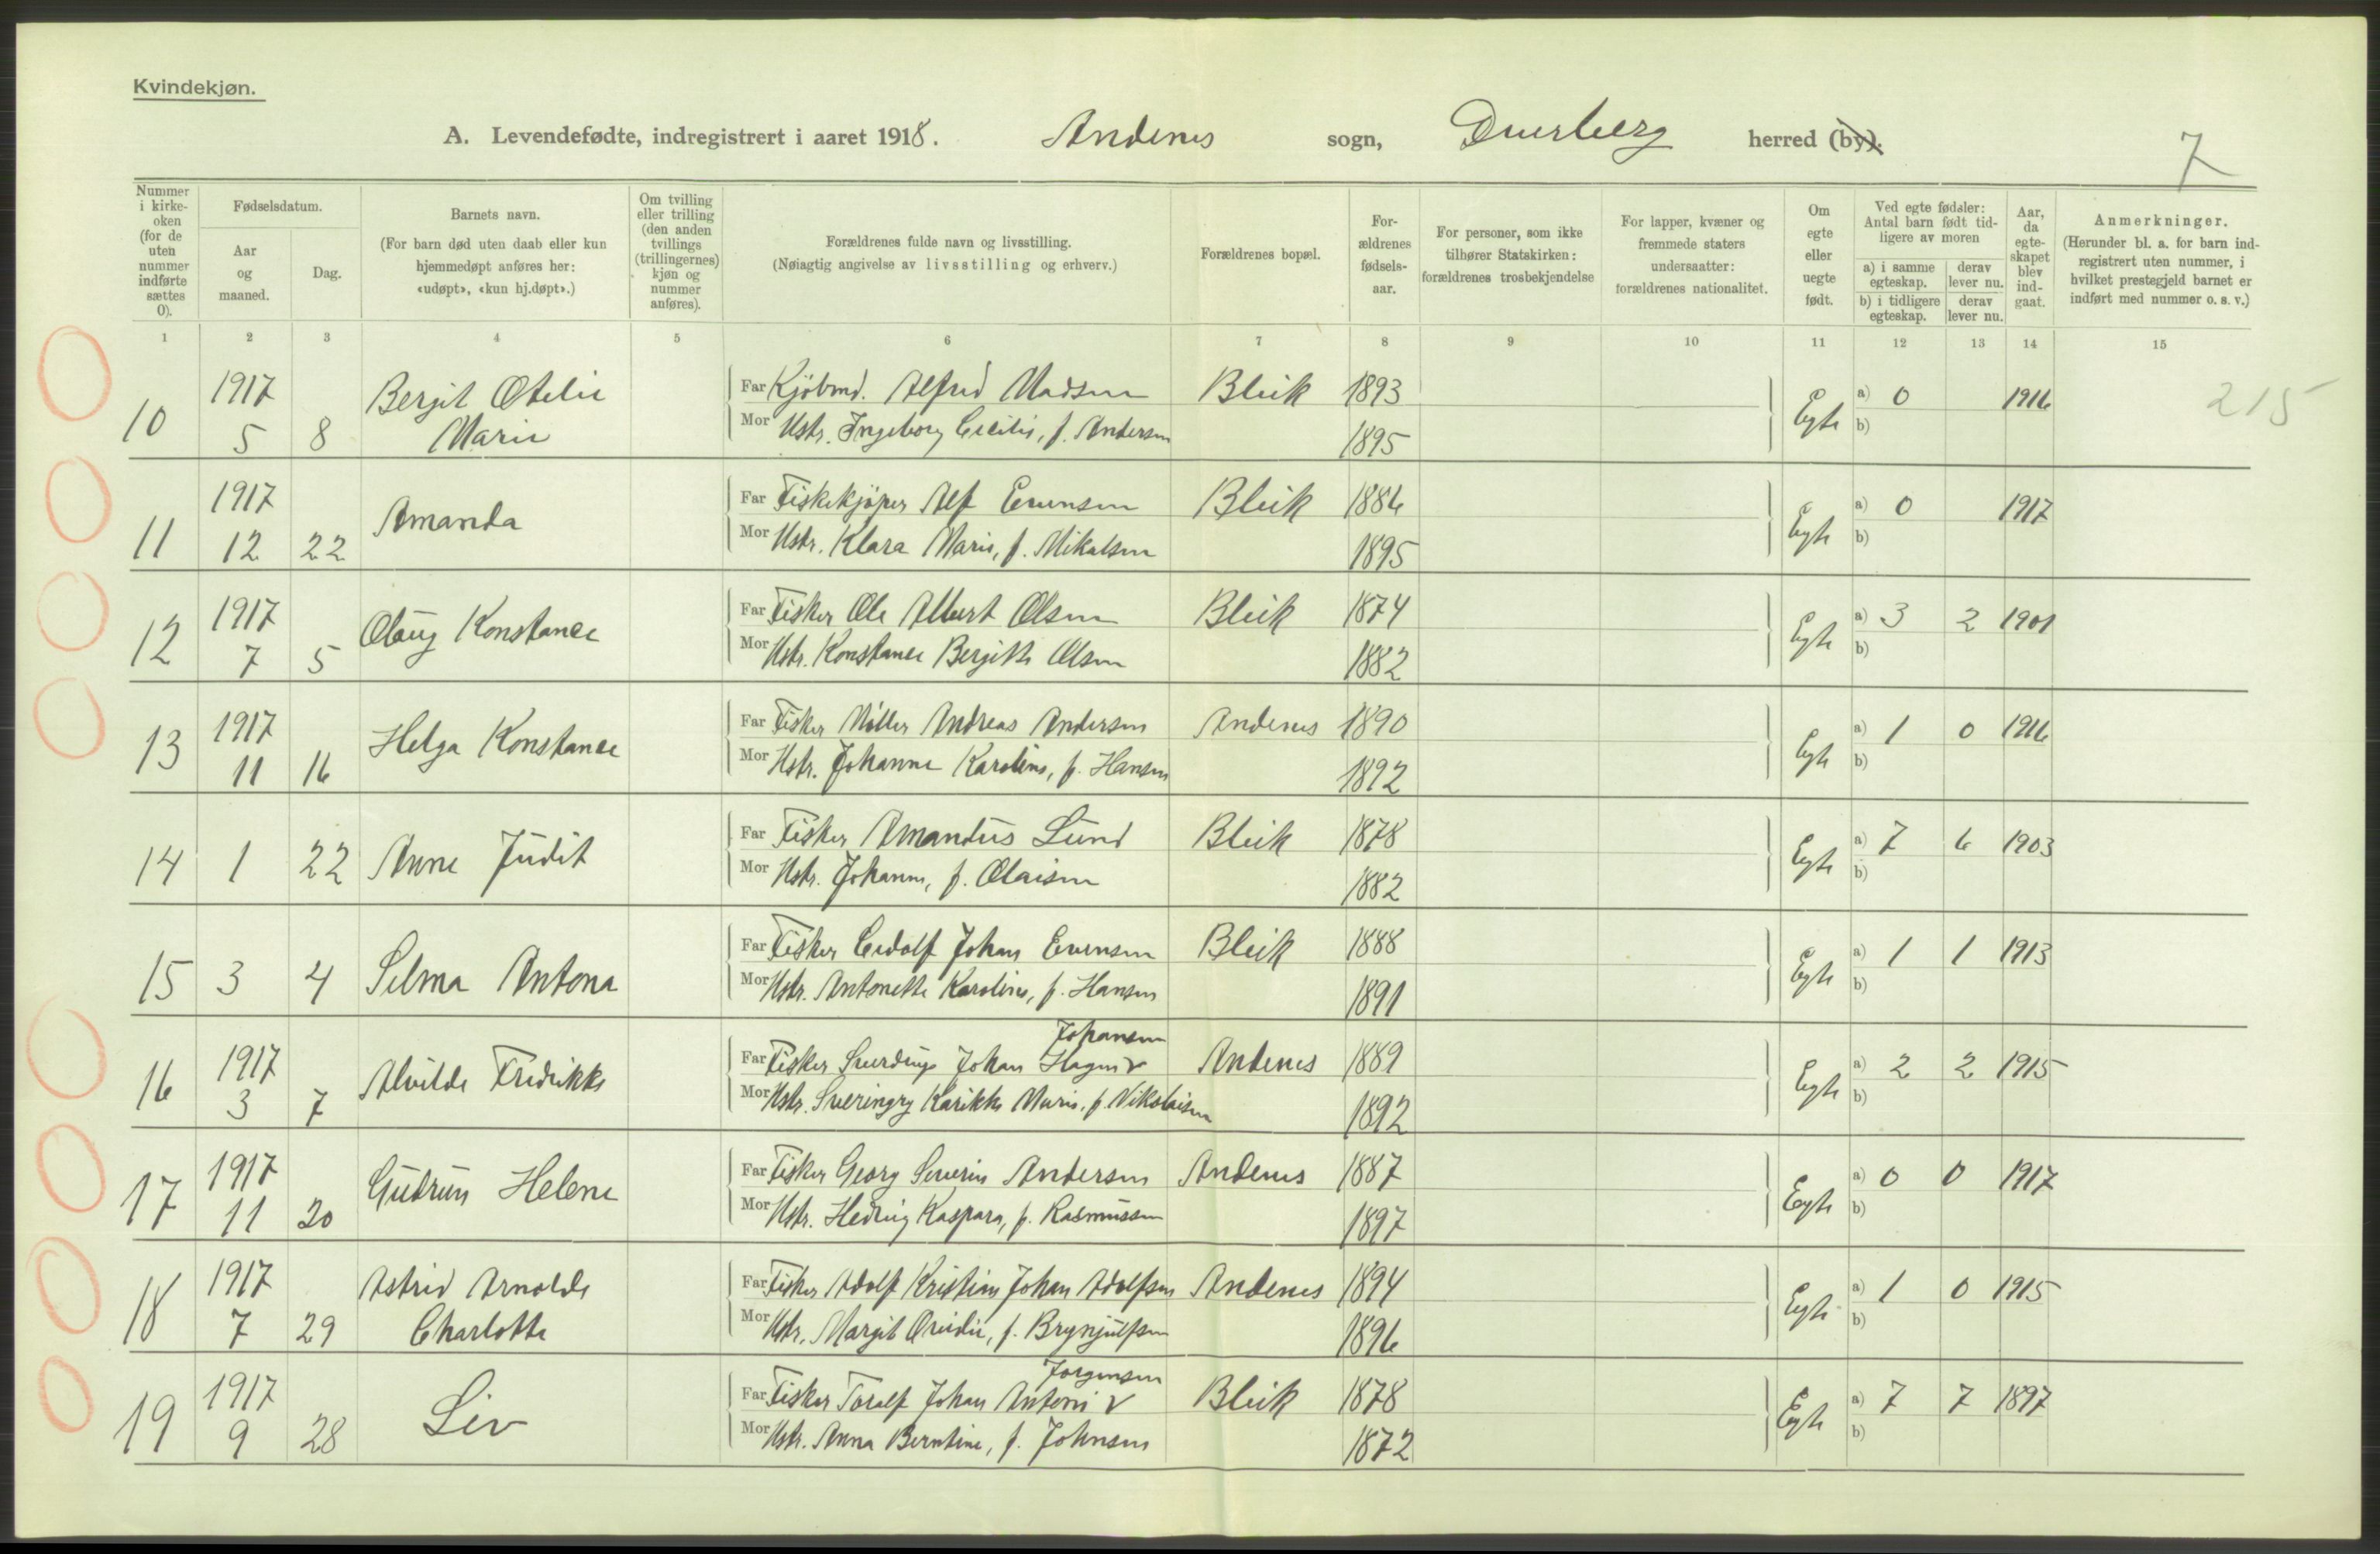 Kvindekjøn.
A. Levendefødte, indregistrert i aaret 1918. Andenes sogn, Dverberg herred (by).
7
Nummer i kirke-oken (for de uten nummer indførte sættes 0).
Fødselsdatum.
Aar og maaned.
Dag.
Barnets navn.
(For barn død uten daab eller kun hjemmedøpt anføres her: «udøpt», «kun hj.døpt».)
Om tvilling eller trilling (den anden tvillings (trillingernes) kjøn og nummer anføres).
Forældrenes fulde navn og livsstilling.
(Nøiagtig angivelse av livsstilling og erhverv.)
Forældrenes bopæl.
For-ældrenes fødsels-aar.
For personer, som ikke tilhører Statskirken: forældrenes trosbekjendelse
For lapper, kvæner og fremmede staters undersaatter: forældrenes nationalitet.
Om egte eller uegte født.
Ved egte fødsler: Antal barn født tid-ligere av moren
a) i samme egteskap. derav lever nu.
b) i tidligere egteskap. derav lever nu.
Aar, da egte-skapet blev ind-gaat.
Anmerkninger.
(Herunder bl. a. for barn ind-registrert uten nummer, i hvilket prestegjeld barnet er indført med nummer o. s. v.)
1 2 3 4 5 6 7 8 9 10 11 12 13 14 15
1917 Bergit Otelie Far Kjøbmd. Alfred Madsen Bleik 1893 Egte a) 0 1916 215
10 5 8 Marie Mor Hstr. Ingeborg Cecilie, f. Andersen 1895 b)
1917 Amanda Far Fiskekjøper Alf Evensen Bleik 1886 Egte a) 0 1917
11 12 22 Mor Hstr. Klara Marie, f. Mikalsen 1895 b)
1917 Olaug Konstance Far Fisker Ole Albert Olsen Bleik 1874 Egte a) 3 2 1901
12 7 5 Mor Hstr. Konstance Bergitte Olsen 1882 b)
1917 Helga Konstance Far Fisker Møller Andreas Andersen Andenes 1890 Egte a) 1 0 1916
13 11 16 Mor Hstr. Johanne Karoline, f. Hansen 1892 b)
Far Fisker Amandus Lund Bleik 1878 Egte a) 7 6 1903
14 1 22 Anne Judit Mor Hstr. Johanne, f. Olaisen 1882 b)
Far Fisker Edolf Johan Evensen Bleik 1888 Egte a) 1 1 1913
15 3 4 Selma Antona Mor Hstr. Antonette Karoline, f. Hansen 1891 b)
Johansen
1917 Alvilde Fredrikke Far Fisker Johan Hagen v Andenes 1889 Egte a) 2 2 1915
16 3 7 Mor Hstr. Karikke Marie, f. Nikolaisen 1892 b)
1917 Gudrun Helene Far Fisker Georg Severin Andersen Andenes 1887 Egte a) 0 0 1917
17 11 20 Mor Hstr. Hedvig Kaspara, f. Rasmussen 1897 b)
1917 Astrid Arnolde Far Fisker Adolf Kristian Johan Adolfsen Andenes 1894 Egte a) 1 0 1915
18 7 29 Charlotte Mor Hstr. Margit f. Brynjulfsen 1896 b)
Jørgensen
1917 Liv Far Fisker Toralf Johan Antoni v Bleik 1878 Egte a) 7 7 1897
19 9 28 Mor Hstr. Anna Berntine, f. Johnsen 1872 b)